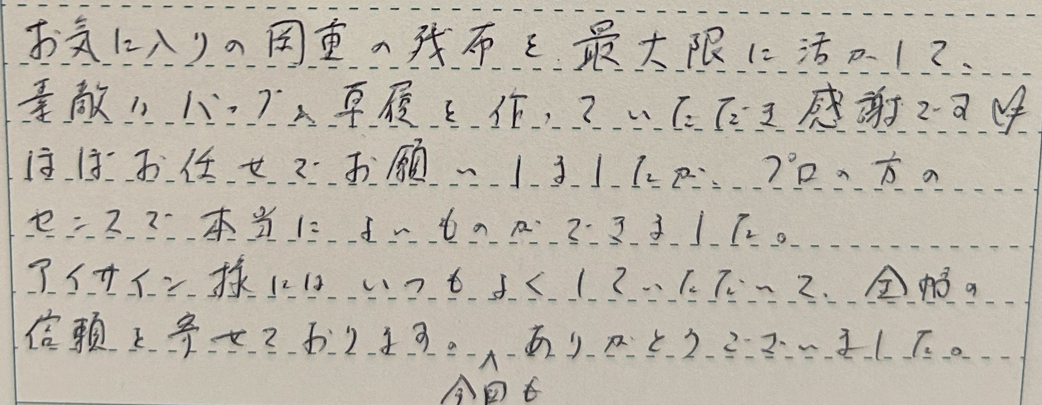 お気に入りの図柄の残布を最大限に活かして、
素敵なバッグと草履を作っていただき感謝です
ほぼお任せでお願いしましたが、プロの方の
センスで本当によいものができました。
アイサイン様にはいつもよくしていただいて、全幅の
信頼を寄せております。ありがとうございました。
今回も